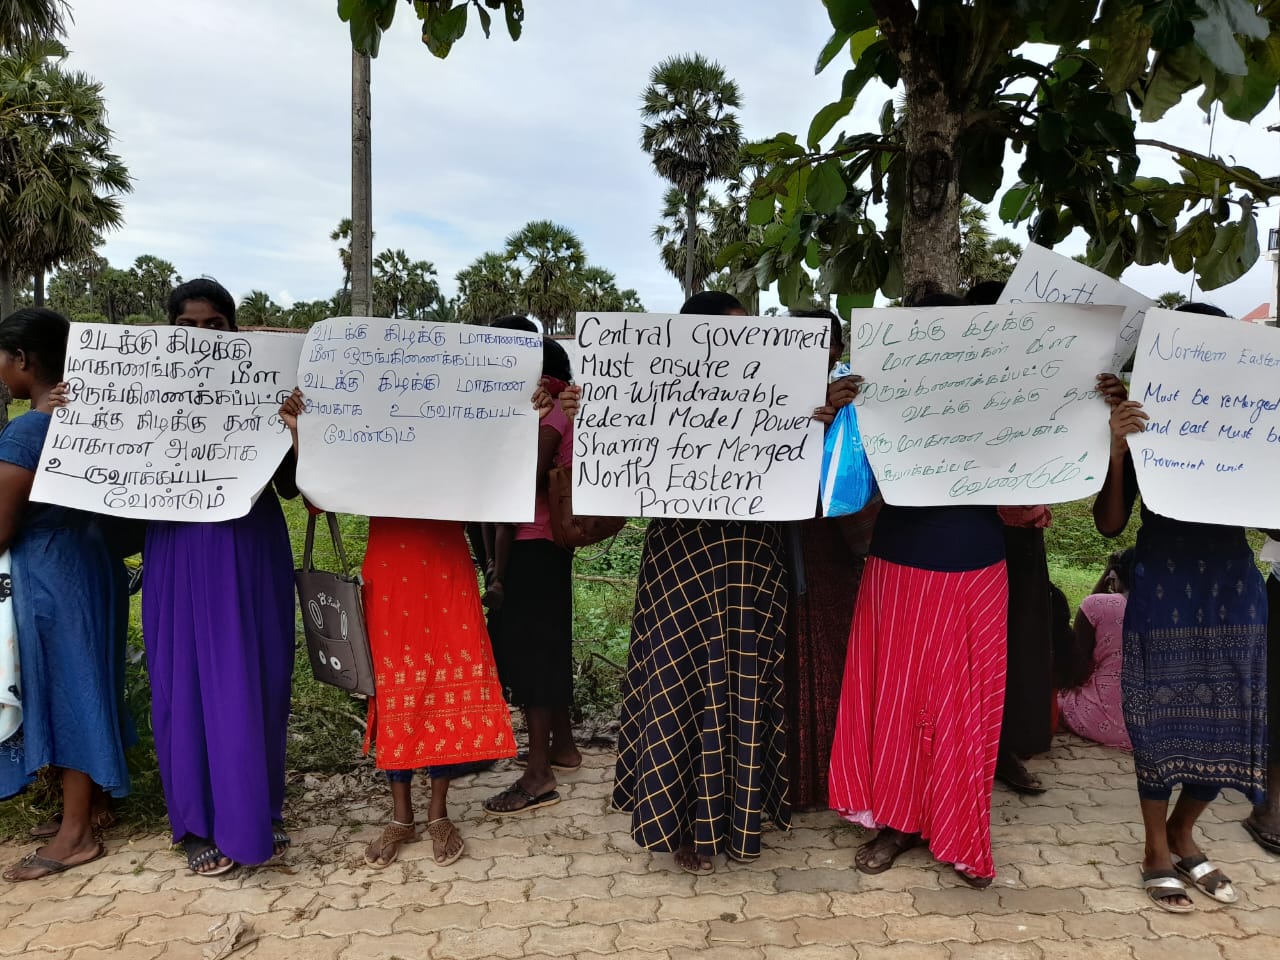 வடக்கு கிழக்கு
மாகாணங்கள் மீள
ஒருங்கிணைக்கப்பட்டு
வடக்கு கிழக்கு தனி ஒ
மாகாண அலகாக
உருவாக்கப்பட
வேண்டும்
வடக்கு கிழக்கு மாகாணங்கள்
மீள ஒருங்கிணைக்கப்பட்டு
வடக்கு கிழக்கு மாகாண
அலகாக உருவாக்கப்பட
வேண்டும்
Central Government
Must ensure a
non-Withdrawable
federal Model Power
Sharing for Merged
North Eastern
Province
வடக்கு கிழக்கு
மாகாணங்கள் மீள
ஒருங்கிணைக்கப்பட்டு
வடக்கு கிழக்கு தனி
ஒரு மாகாண அலகாக
உருவாக்கப்பட
வேண்டும்.
North
Northern Eastern
Must be reMerged
and east Must be
Provincial unit